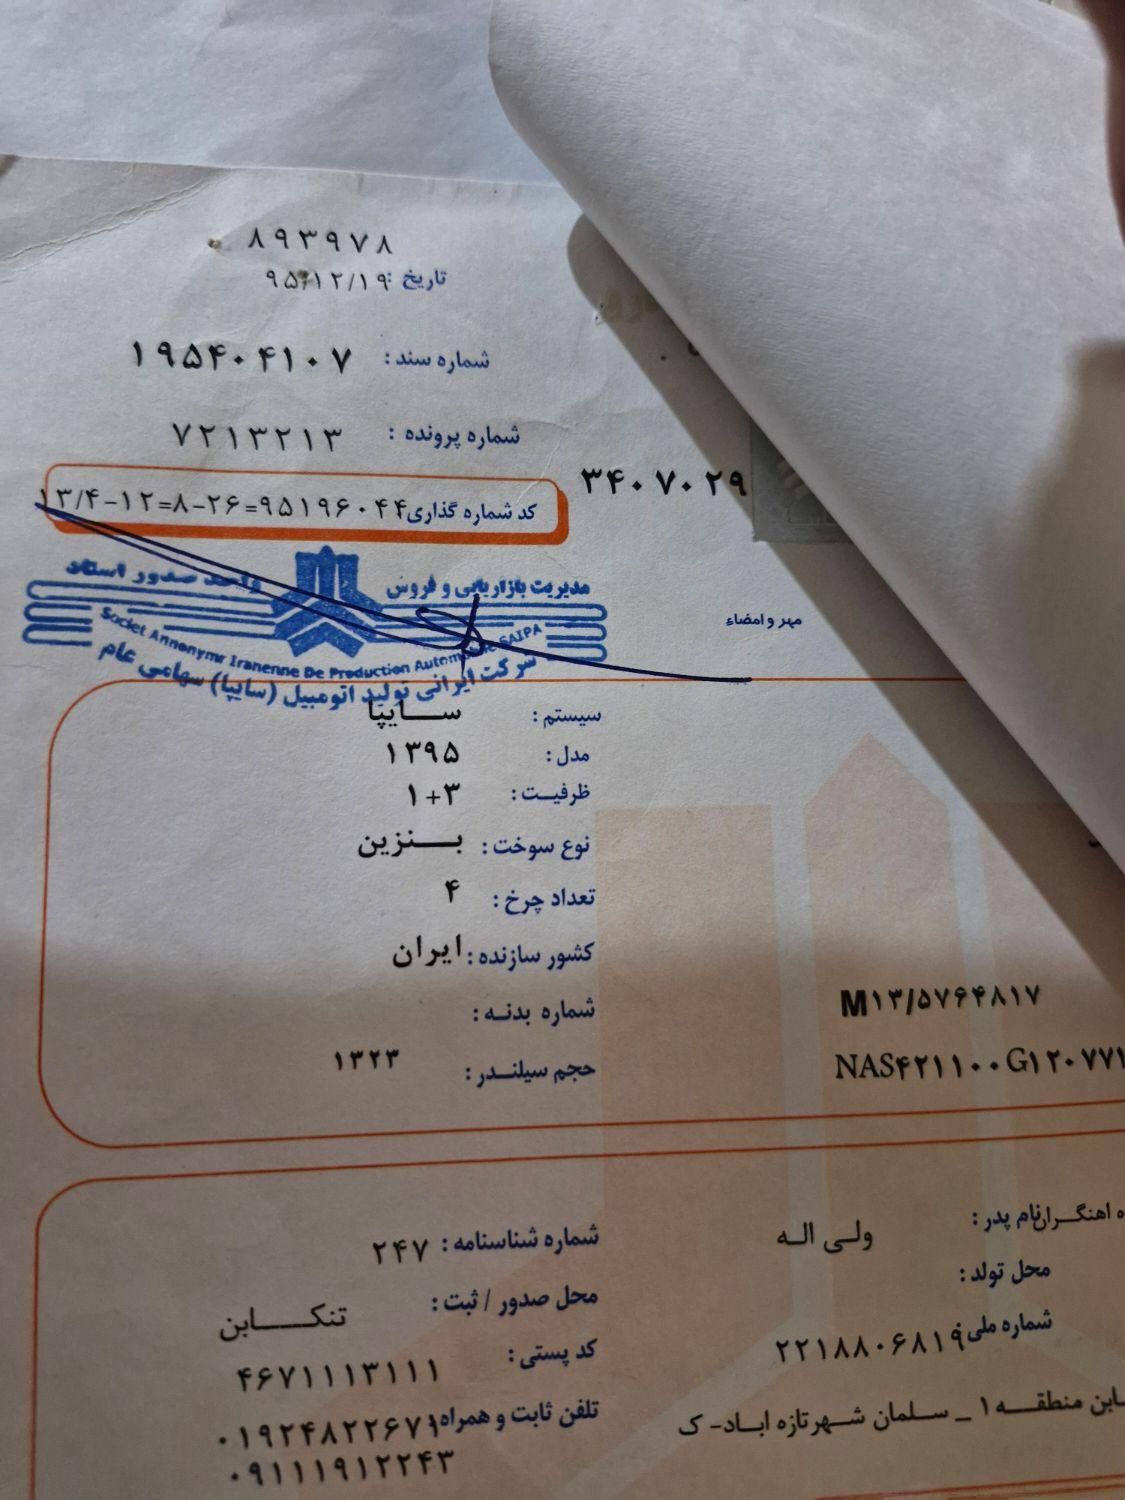 ۸۹۳۹۷۸
تاریخ : ۹۵/۱۲/۱۹
شماره سند : ۱۹۵۴۰۴۱۰۷
شماره پرونده : ۷۲۱۳۲۱۳
۳۴۰۷۰۲۹
کد شماره گذاری ۱۳/۴-۱۲=۸-۲۶=۹۵۱۹۶۰۴۴
مدیریت بازاریابی و فروش واحد صدور اسناد
Societ Annonymr Iranenne De Production Automobile SAIPA
شرکت ایرانی تولید اتومبیل (سایپا) سهامی عام
مهر و امضاء
سیستم : سایپا
مدل : ۱۳۹۵
ظرفیت : ۱+۳
نوع سوخت : بنزین
تعداد چرخ : ۴
کشور سازنده : ایران
شماره بدنه :
M۱۳/۵۷۶۴۸۱۷
حجم سیلندر : ۱۳۲۳
NAS۴۲۱۱۰۰G۱۲۰۷۷۱
ه اهنگران نام پدر : ولی اله
شماره شناسنامه : ۲۴۷
محل تولد :
محل صدور / ثبت : تنکابن
شماره ملی : ۲۲۱۸۸۰۶۸۱۹
کد پستی : ۴۶۷۱۱۱۳۱۱۱
ابن منطقه ۱ _ سلمان شهرتازه اباد- ک
تلفن ثابت و همراه : ۰۱۹۲۴۸۲۲۶۷۱
۰۹۱۱۱۹۱۲۲۴۳